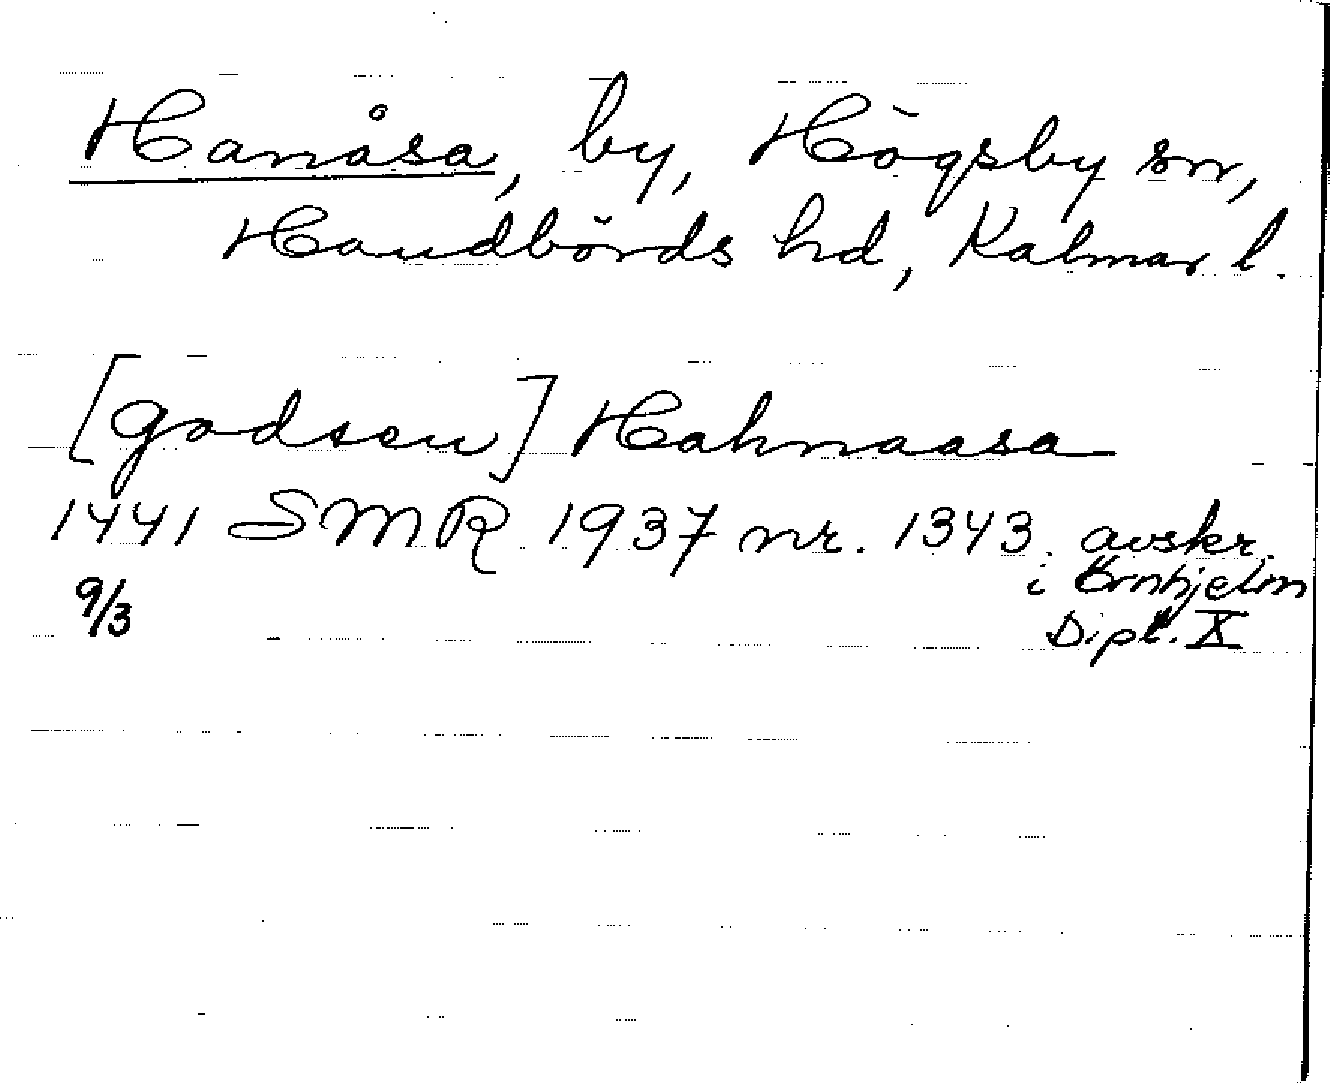 Hanåsa, by, Högsby sn,
Handbörds hd, Kalmar l.
[godsen] Hahnaasa
1441 SMR 1937 nr. 1343. avskr.
9/3 i Örnhjelm
Dipl. X